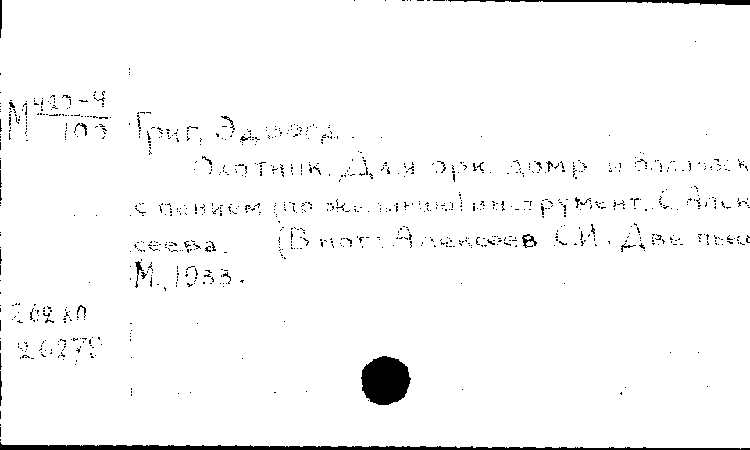 М 423-4
103
Григ, Эдвард.
Охотник. Для орк. домр и балалаек
с пением (по желанию) инструмент. С. Алек
сеева. (В нот.: Алексеев С.И. Две пьес
М., 1933.
262 кп
26278